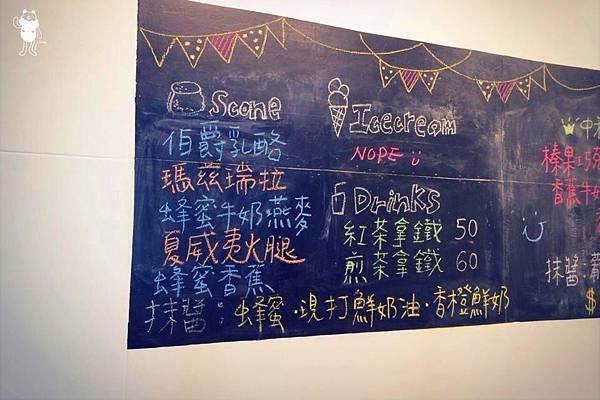 Scone
伯爵乳酪
瑪茲瑞拉
蜂蜜牛奶燕麥
夏威夷火腿
蜂蜜香蕉
抹醬：蜂蜜·現打鮮奶油·香橙鮮奶
Icecream
NOPE
Drinks
紅茶拿鐵 50
煎茶拿鐵 60
榛果巧克
香蕉牛奶
抹醬：
$